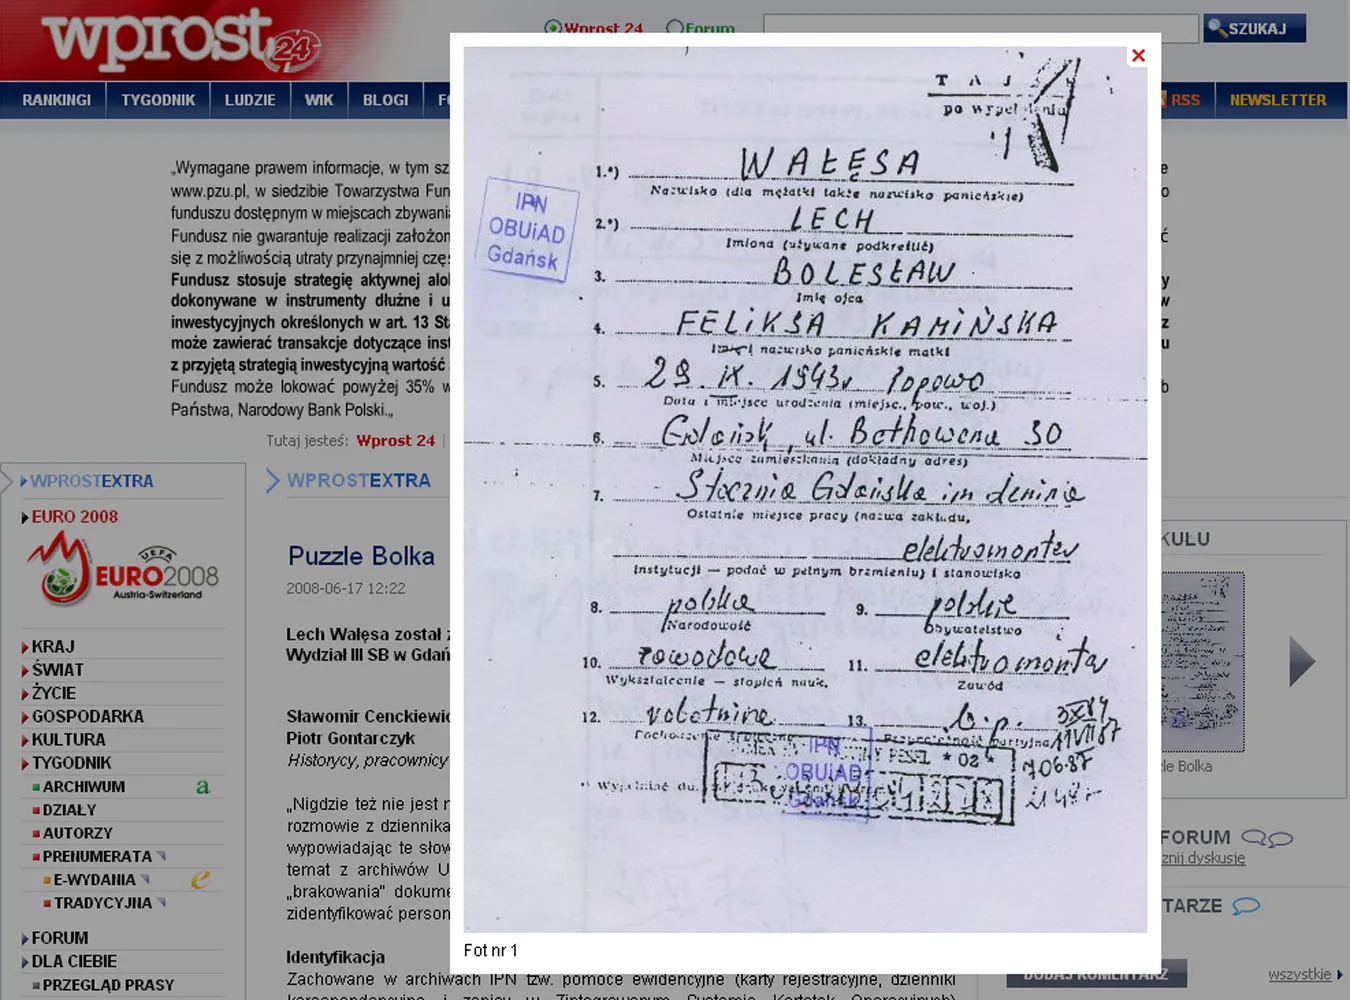 wprost 24
Wprost 24 Forum
SZUKAJ
RANKINGI TYGODNIK LUDZIE WIK BLOGI
RSS NEWSLETTER
„Wymagane prawem informacje, w tym sz
www.pzu.pl, w siedzibie Towarzystwa Fun
funduszu dostępnym w miejscach zbywani
Fundusz nie gwarantuje realizacji założon
się z możliwością utraty przynajmniej częś
Fundusz stosuje strategię aktywnej alok
dokonywane w instrumenty dłużne i u
inwestycyjnych określonych w art. 13 St
może zawierać transakcje dotyczące inst
z przyjętą strategią inwestycyjną wartość
Fundusz może lokować powyżej 35% w
Państwa, Narodowy Bank Polski.„
Tutaj jesteś: Wprost 24 |
WPROSTEXTRA
EURO 2008
UEFA
EURO2008
Austria-Switzerland
KRAJ
ŚWIAT
ŻYCIE
GOSPODARKA
KULTURA
TYGODNIK
ARCHIWUM a
DZIAŁY
AUTORZY
PRENUMERATA
E-WYDANIA e
TRADYCYJNA
FORUM
DLA CIEBIE
PRZEGLĄD PRASY
WPROSTEXTRA
Puzzle Bolka
2008-06-17 12:22
Lech Wałęsa został z
Wydział III SB w Gdań
Sławomir Cenckiewic
Piotr Gontarczyk
Historycy, pracownicy
„Nigdzie też nie jest n
rozmowie z dziennika
wypowiadając te słow
temat z archiwów U
„brakowania" dokume
zidentyfikować person
Identyfikacja
Zachowane w archiwach IPN tzw. pomoce ewidencyjne (karty rejestracyjne, dzienniki
korespondencyjne i zapisy w Zintegrowanym Systemie Kartotek Operacyjnych)
T A J
po wypełnieniu
IPN
OBUiAD
Gdańsk
1.*) WAŁĘSA
Nazwisko (dla mężatki także nazwisko panieńskie)
2.*) LECH
Imiona (używane podkreślić)
3. BOLESŁAW
Imię ojca
4. FELIKSA KAMIŃSKA
Imię i nazwisko panieńskie matki
5. 29. IX. 1943r Popowo
Data i miejsce urodzenia (miejsc., pow., woj.)
6. Gdańsk, ul. Bethowena 30
Miejsce zamieszkania (dokładny adres)
7. Stocznia Gdańska im Lenina
Ostatnie miejsce pracy (nazwa zakładu,
elektromonter
instytucji — podać w pełnym brzmieniu) i stanowisko
8. polska 9. polskie
Narodowość Obywatelstwo
10. zawodowe 11. elektromonter
Wykształcenie — stopień nauk. Zawód
12. robotnicze 13. b.p.
Pochodzenie społeczne Przynależność partyjna
PESEL * 02 *
IPN
OBUiAD
Gdańsk
Fot nr 1
KUŁU
zle Bolka
FORUM
znij dyskusję
TARZE
DODAJ KOMENTARZ
wszystkie